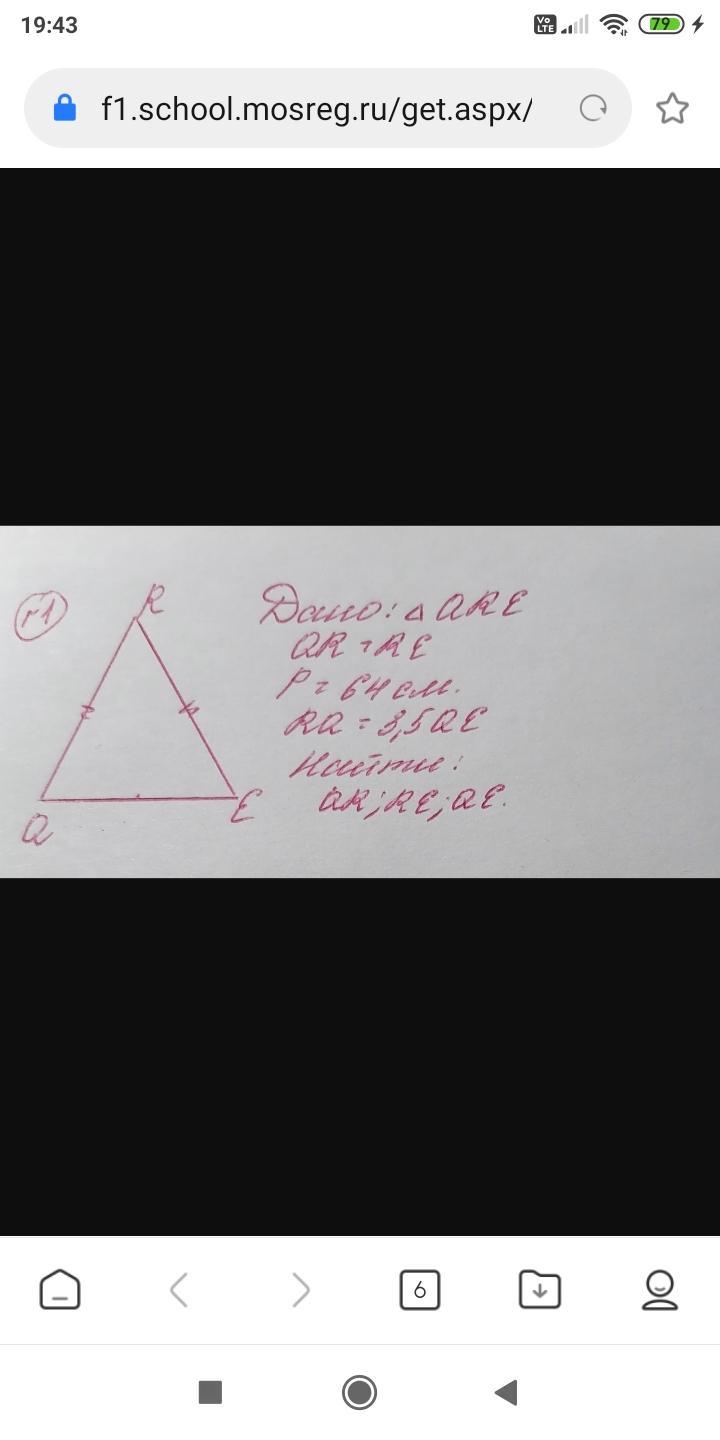 19:43
Vo LTE
79
f1.school.mosreg.ru/get.aspx/
№1
R
Q
E
Дано: △ QRE
QR = RE
P = 64 см.
RQ = 3,5 QE
Найти:
QR; RE; QE.
6